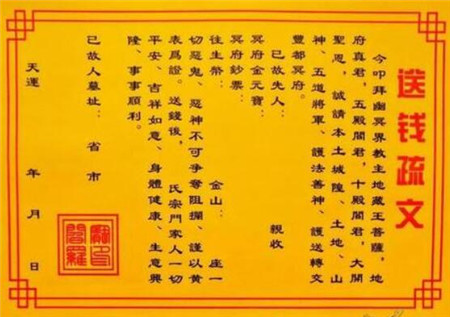 送钱疏文
今叩拜幽冥界教主地藏王菩薩、地
府真君,五殿閻君,十殿閻君,大開
聖恩,誠請本土城隍、土地、山
神、五道將軍、護法善神、護送轉文
豐都冥府。
已故先人: 親收
冥府金元寶:
冥府鈔票:
往生幣: 金山: 座一
切惡鬼、惡神不可爭奪阻攔、謹以黃
表爲證。送錢後, 氏宗門家人一切
平安、吉祥如意、身體健康、生意興
隆、事事順利。
已故人墓址: 省市
天運 年 月 日